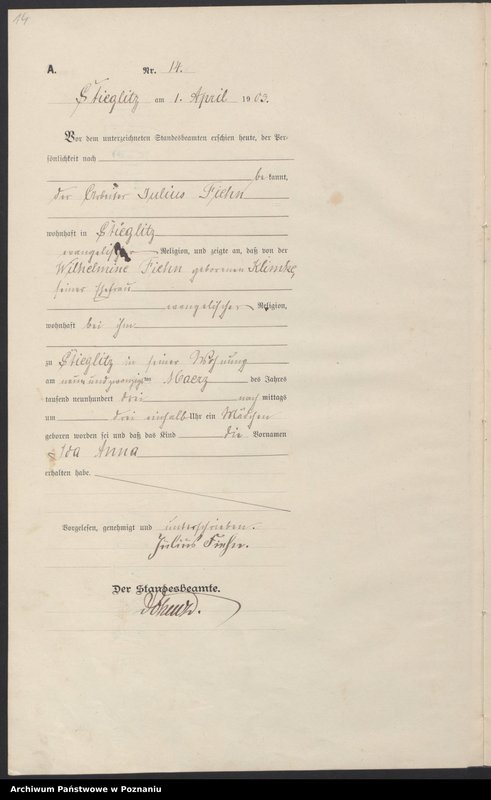 14
A. Nr. 14.
Stieglitz am 1. April 1903.
Vor dem unterzeichneten Standesbeamten erschien heute, der Per-
sönlichkeit nach
be kannt,
der Arbeiter Julius Fiehn
wohnhaft in Stieglitz
evangelischer Religion, und zeigte an, daß von der
Wilhelmine Fiehn geborenen Klimke,
seiner Ehefrau
evangelischer Religion,
wohnhaft bei ihm
zu Stieglitz in seiner Wohnung
am neunundzwanzigsten Maerz des Jahres
tausend neunhundert drei nach mittags
um drei einhalb Uhr ein Mädchen
geboren worden sei und daß das Kind die Vornamen
Ida Anna
erhalten habe.
Vorgelesen, genehmigt und unterschrieben.
Julius Fiehn.
Der Standesbeamte.
Archiwum Państwowe w Poznaniu